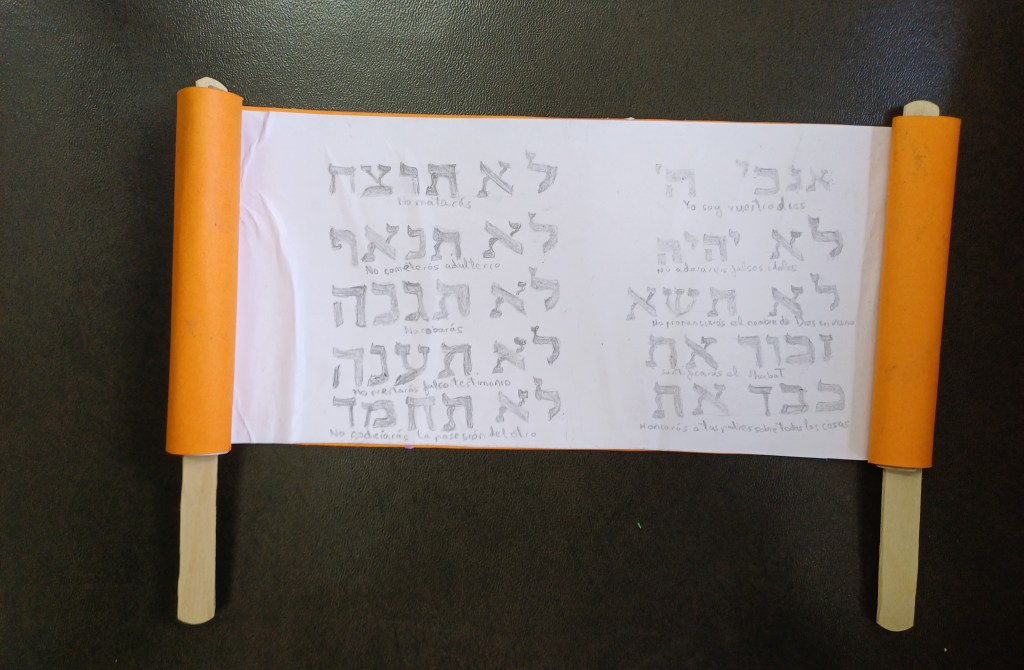 אנכי ה'
Yo soy vuestro dios
לא יהיה
No adoraras falsos idolos
לא תשא
No pronunciarás el nombre de Dios en vano
זכור את
santificarás al Shabat
כבד את
Honrarás a tus padres sobre todas las cosas
לא תרצח
No matarás
לא תנאף
No cometerás adulterio
לא תגכה
No robarás
לא תענה
No prestarás falso testimonio
לא תחמד
No codiciarás la posesión del otro